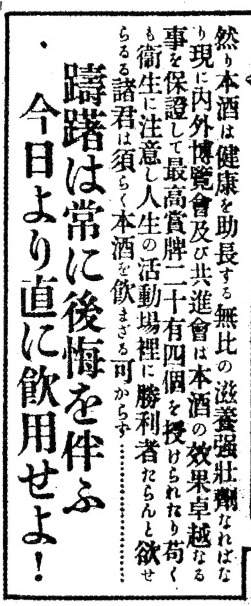 然り本酒は健康を助長する無比の滋養强壯劑なればな
り現に內外博覽會及び共進會は本酒の效果卓越なる
事を保證して最高賞牌二十有四個を授けられたり苟く
も衞生に注意し人生の活動場裡に勝利者たらんと欲せ
らるる諸君は須らく本酒を飮まざる可からず…………………
躊躇は常に後悔を伴ふ
・今日より直に飮用せよ！